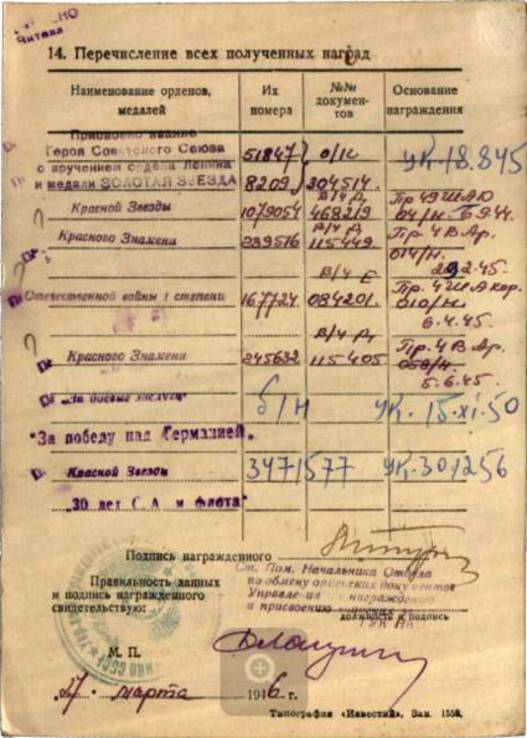 Читака
14. Перечисление всех полученных наград
Наименование орденов, медалей
Их номера
№№ документов
Основание награждения
Присвоено звание
Героя Советского Союза
с вручением ордена Ленина
и медали ЗОЛОТАЯ ЗВЕЗДА
51847 } о/к УК. 18.845
8209 } 304514.
Красной Звезды 1079054 в/ч Д 468219 Пр 49 ША Ю 04/н. 6 9.44.
Красного Знамени 239516 в/ч Д 115449 Пр. 4 В Ар. 014/н. 2.45.
Отечественной войны I степени 167724 в/ч Е 084201. Пр. 4 ША кор. 010/н. 6.4.45.
Красного Знамени 245632 в/ч Д 115405 Пр. 4 В Ар. 058/н. 5.6.45.
"За боевые заслуги" б/н УК. 15.XI.50
"За победу над Германией."
Красной Звезды 3471577 УК. 301256
"30 лет С.А. и Флота"
Подпись награжденного
Правильность данных
и подпись награжденного
свидетельствую:
Ст. Пом. Начальника Отдела
по обмену орденских документов
Управления по награждению
и присвоению
должность и подпись
М. П.
27. марта 1946 г.
Типография «Известий». Зак. 1558.